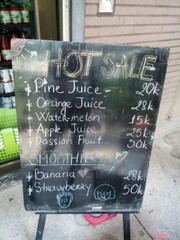 HOT SALE
Pine Juice - 20k
Orange Juice 28k
Watermelon - 15k
Apple Juice 25k
Passion Fruit 30k
SMOOTHIES
Banana 28k
Strawberry 50k